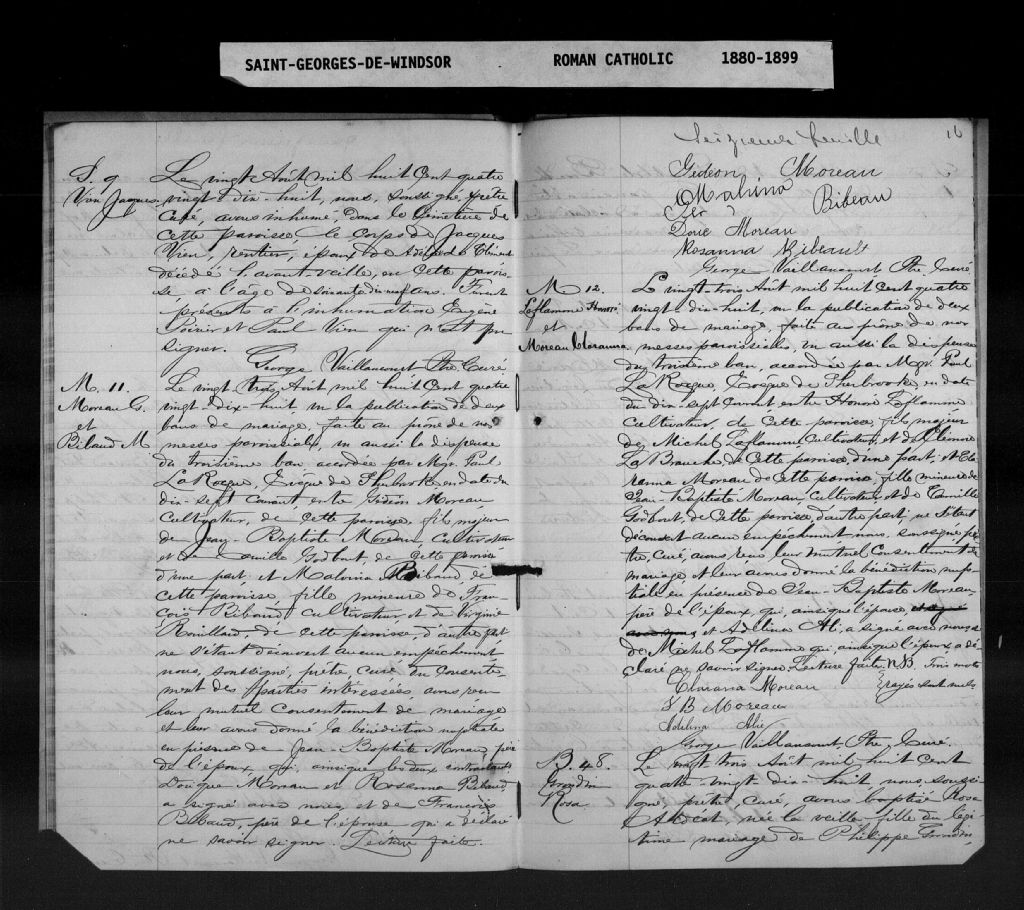 SAINT-GEORGES-DE-WINDSOR ROMAN CATHOLIC 1880-1899
S. 9
Vien Jacques.
Le vingt Août mil huit cent quatre
vingt-dix-huit, nous, soussigné, prêtre
curé, avons inhumé dans le cimetière de
cette paroisse, le corps de Jacques
Vien, rentier, époux de Adélaïde Clément
décédé l'avant veille, en cette parois-
se à l'âge de soixante dix neuf ans. Furent
présents à l'inhumation Eugène
Poirier et Paul Vien qui n'ont pu
signer.
George Vaillancourt Ptre Curé
M. 11.
Moreau G.
et
Bibaud M
Le vingt trois Août mil huit cent quatre
vingt-dix-huit vu la publication de deux
bans de mariage, faite au prône de nos
messes paroissiales, vu aussi la dispense
du troisième ban accordée par Mgr. Paul
LaRocque, Evêque de Sherbrooke, en date du
dix-sept courant, entre Gédéon Moreau
cultivateur, de cette paroisse, fils majeur
de Jean-Baptiste Moreau, cultivateur
et de Camille Godbout, de cette paroisse
d'une part, et Malvina Bibaud de
cette paroisse, fille mineure de Fran-
çois Bibaud cultivateur, et de Virginie
Rouillard, de cette paroisse, d'autre part
ne s'étant découvert aucun empêchement
nous, soussigné, prêtre, curé, du consente-
ment des parties intéressées, avons reçu
leur mutuel consentement de mariage
et leur avons donné la bénédiction nuptiale
en présence de Jean-Baptiste Moreau, père
de l'époux qui, ainsi que les deux contractants
Moreau et Rosanna Bibaud
a signé avec nous, et de François
Bibaud, père de l'épouse qui a déclaré
ne savoir signer. Lecture faite.
16
Seizième feuille
Gédéon Moreau
Malvina Bibeau
Dorie Moreau
Rosanna Bibeault
George Vaillancourt Ptre Curé
M 12.
Laflamme Honoré
et
Moreau Cloranna
Le vingt-trois Août mil huit cent quatre
vingt-dix-huit, vu la publication de deux
bans de mariage, faite au prône de nos
messes paroissiales, vu aussi la dispense
du troisième ban, accordée par Mgr. Paul
LaRocque, Evêque de Sherbrooke, en date
du dix-sept courant, entre Honoré Laflamme
cultivateur, de cette paroisse, fils majeur
de Michel Laflamme, cultivateur, et de
La Branche, de cette paroisse, d'une part, et Clo-
ranna Moreau de cette paroisse, fille mineure de
Jean-Baptiste Moreau, cultivateur, et de Camille
Godbout, de cette paroisse, d'autre part, ne s'étant
découvert aucun empêchement nous, soussigné prê-
tre, curé, avons reçu leur mutuel consentement de
mariage et leur avons donné la bénédiction nup-
tiale en présence de Jean-Baptiste Moreau,
père de l'époux qui, ainsi que l'épouse,
et Adelina Ali, a signé avec nous, et
de Michel Laflamme qui, ainsi que l'époux, a dé-
claré ne savoir signer. Lecture faite. N.B. Trois mots
rayés sont nuls
Clorana Moreau
J B Moreau
Adelina Alie
George Vaillancourt, Ptre Curé.
B. 48.
Grondin
Rosa.
Le vingt trois Août mil huit cent
quatre-vingt dix-huit, nous, soussi-
gné, prêtre, curé, avons baptisé Rosa
née la veille, fille du légi-
time mariage de Philippe Grondin,